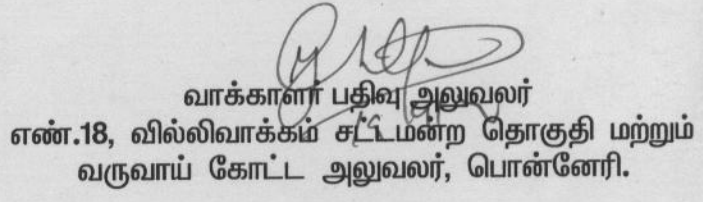 வாக்காளர் பதிவு அலுவலர்
எண்.18, வில்லிவாக்கம் சட்டமன்ற தொகுதி மற்றும்
வருவாய் கோட்ட அலுவலர், பொன்னேரி.